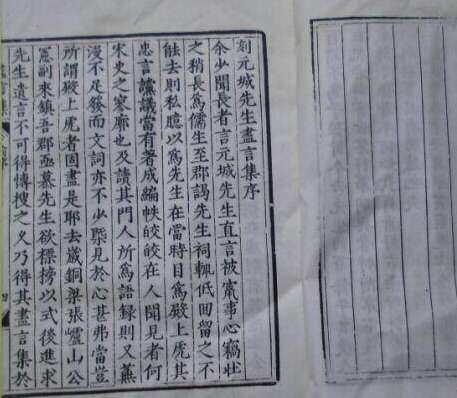 刻元城先生盡言集序
余少聞長者言元城先生直言被竄事心竊壯
之稍長爲儒生至郡謁先生祠輒低回留之不
能去則私臆以爲先生在當時目爲殿上虎其
忠言讜議當有著成編帙皎皎在人聞見者何
宋史之寥廓也及讀其門人所爲語錄則又蕪
漫不足發而文詞亦不少槩見於心甚弗當豈
所謂殿上虎者固盡是耶去歲銅梁張山公
憲副來鎮吾郡亟慕先生欲標搒以式後進求
先生遺言不可得愽搜之久乃得其盡言集於